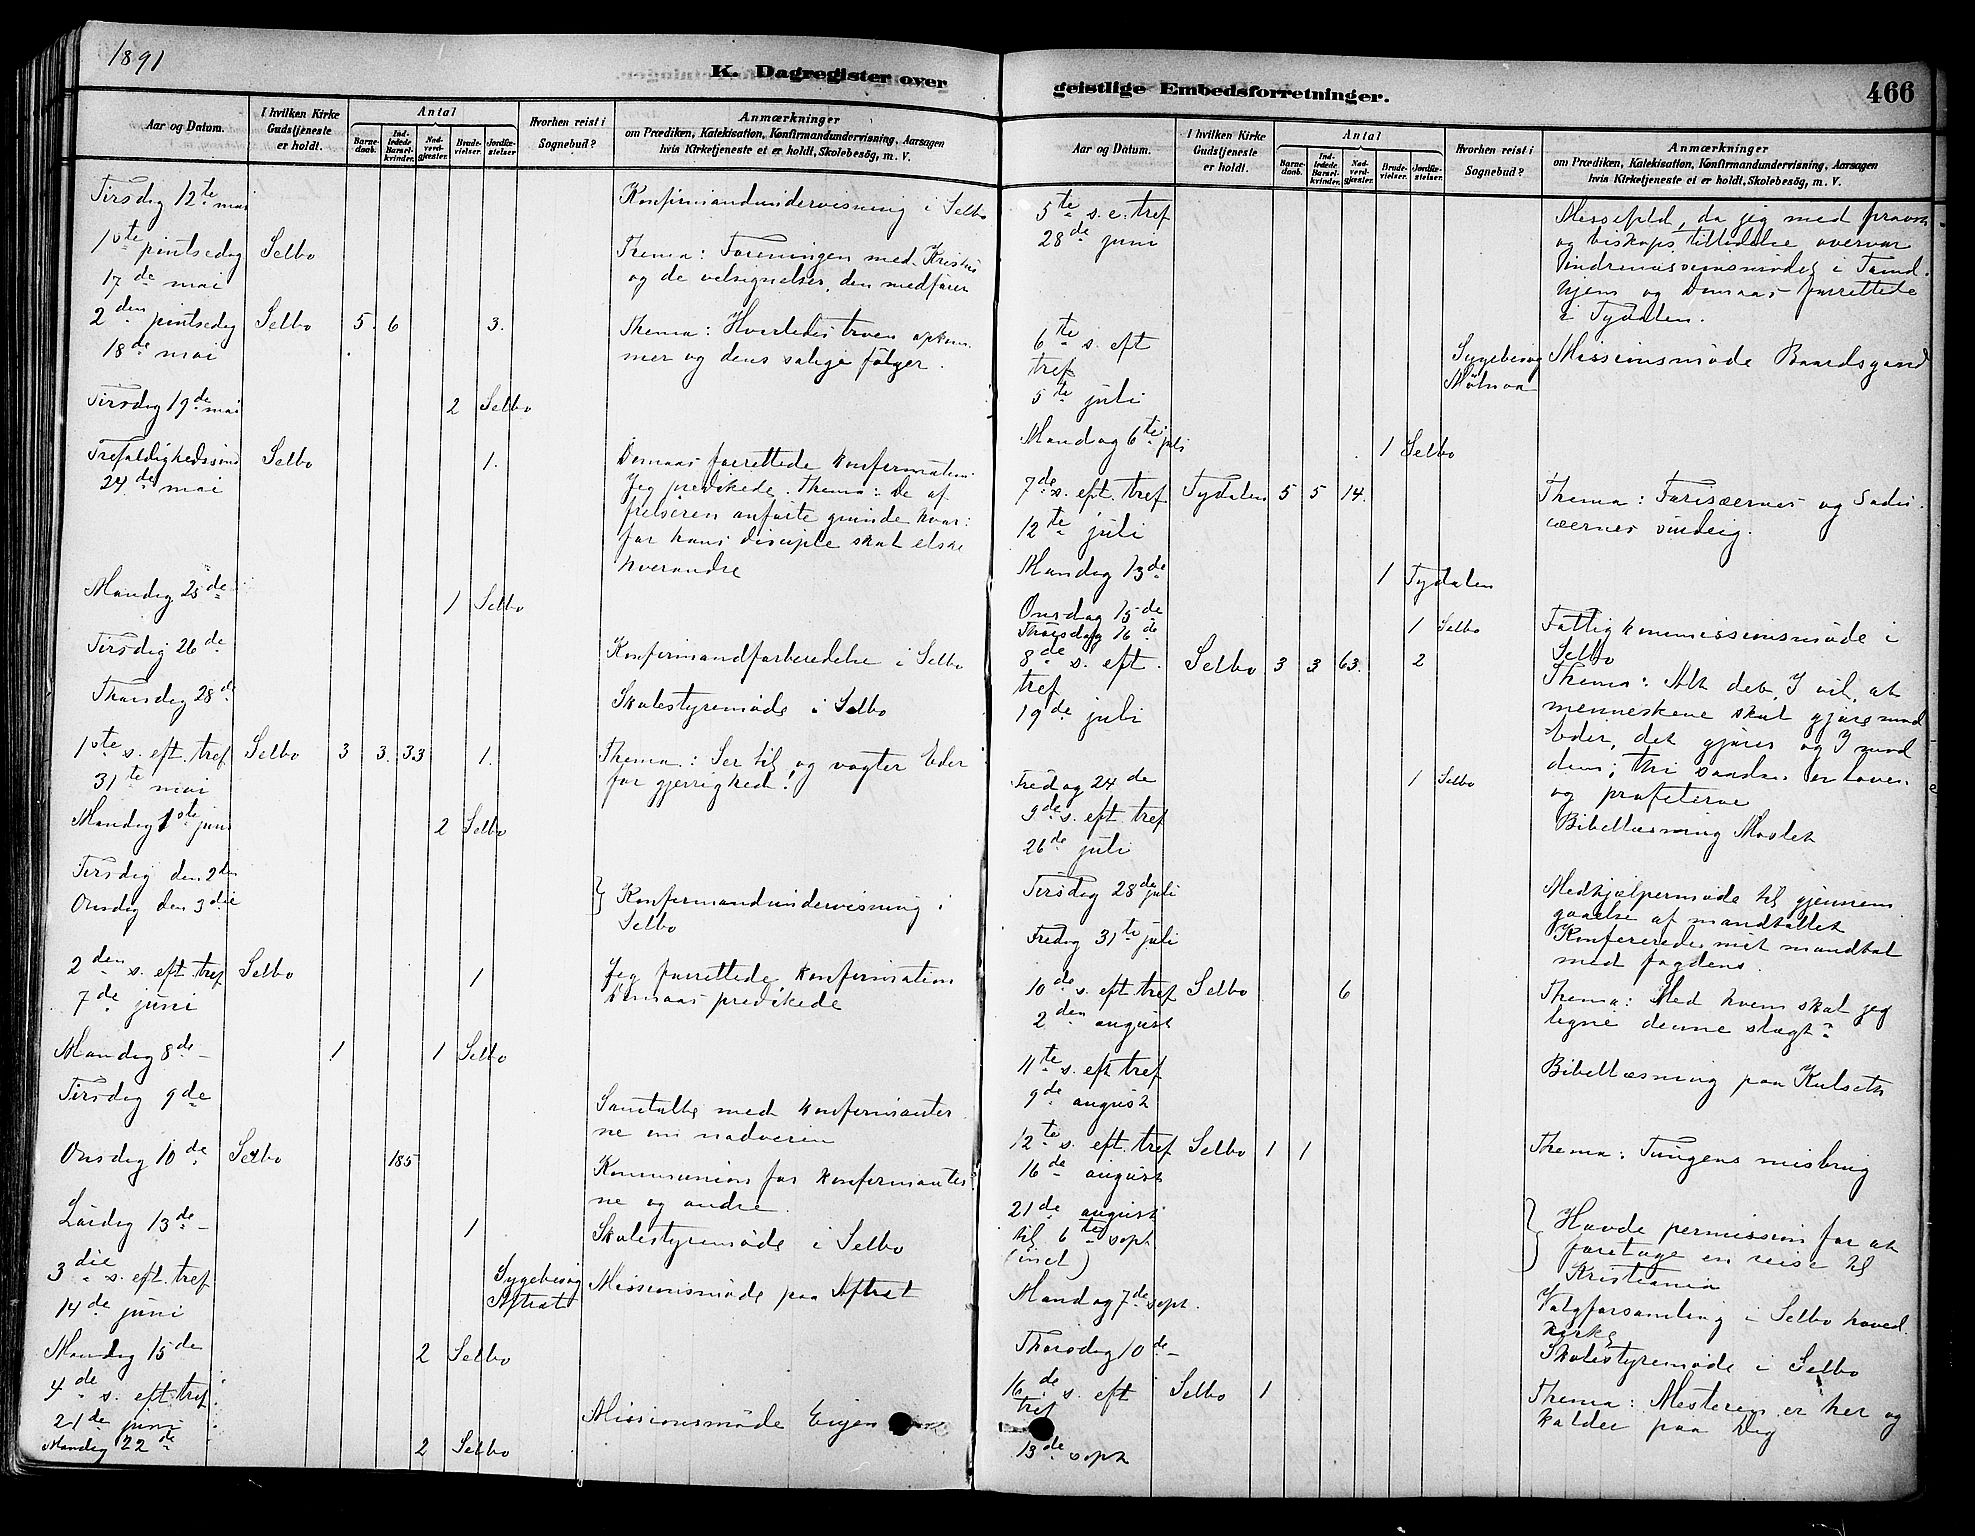 1891
K. Dagregister over
Aar og Datum.
I hvilken Kirke Gudstjeneste er holdt.
Antal
Barnedaab.
Indledede Barselkvinder.
Nadverdgjæster.
Brudevielser.
Jordfæstelser
Hvorhen reist i Sognebud?
Anmærkninger
om Prædiken, Katekisation, Konfirmandundervisning, Aarsagen
hvis Kirketjeneste et er holdt, Skolebesög, m. V.
Tirsdag 12te mai Konfirmandundervisning i Selbo
1ste pintsedag Selbo Thema: Foreningen med Kristus
17de mai og de velsignelser, den medfører
2den pintsedag Selbo 5. 6 3. Thema: Hvorledes troen opkom-
18de mai mer og dens salige følger.
Tirsdag 19de mai 2 Selbo
Trefoldighedssønd Selbo 1. Domaas forrettede konfirmation.
24de mai Jeg prædikede. Thema: De af
frelseren anførte grunde hvor:
for hans disciple skal elske
hverandre
Mandag 25de 1 Selbo
Tirsdag 26de Konfirmandforberedelse i Selbo
Thorsdag 28de Skolestyremøde i Selbo
1ste s. eft. tref Selbo 3 3. 33 1. Thema: Ser til og vogter Eder
31te mai for gjerrighed!
Mandag 1ste juni 2 Selbo
Tirsdag den 2den
Onsdag den 3die } Konfirmandundervisning i
Selbo
2den s. eft. tref Selbo 1 Jeg forrettede konfirmation
7de juni Domaas prædikede
Mandag 8de 1 1 Selbo
Tirsdag 9de Samtalte med konfirmanter
ne om nadveren
Onsdag 10de Selbo 185 Kommunion for konfirmanter
ne og andre.
Lørdag 13de 1 Skolestyremøde i Selbo
3die s. eft. tref Sygebesøg Missionsmøde paa Aftret
14de juni Aftret
Mandag 15de 2 Selbo
4de s. eft. tref
21de juni Missionsmøde Evjen
Mandag 22de 2 Selbo
geistlige Embedsforretninger.
466
Aar og Datum.
I hvilken Kirke Gudstjeneste er holdt.
Antal
Barnedaab.
Indledede Barselkvinder.
Nadverdgjæster.
Brudevielser.
Jordfæstelser.
Hvorhen reist i Sognebud?
Anmærkninger
om Prædiken, Katekisation, Konfirmandundervisning, Aarsagen
hvis Kirketjeneste et er holdt, Skolebesög, m. V.
5te s. e. tref Messefald, da jeg med provsts
28de juni og biskops tilladelse overvar
Indremissionsmødet i Trond-
hjem og Domaas forrettede
i Tydalen.
6te s. eft Sygebesøg Missionsmøde Baardsgaard
tref
5te juli
Mandag 6te juli 1 Selbo
7de s. eft. tref Tydalen 5 5 14. Thema: Farisæernes og Sadu-
12te juli cæernes surdeig.
Mandag 13de 1 Tydalen
Onsdag 15de 1 Selbo
Thorsdag 16de Fattigkommissionsmøde i
Selbo
8de s. eft. Selbo 3 3 63. 2 Thema: Alt det, I vil, at
tref menneskene skal gjøre mod
19de juli Eder, det gjøre og I mod
dem; thi saadan er loven
og profeterne
Fredag 24de 1 Selbo
9de s. eft. tref Bibellæsning Moslet
26de juli
Tirsdag 28de juli Medhjælpermøde til gjennem
gaaelse af mandtallet
Fredag 31te juli Konfererede mit mandtal
med fogdens.
10de s. eft. tref Selbo 6 Thema: Med hvem skal jeg
2den august ligne denne slægt?
11te s. eft. tref Bibellæsning paa Kulseth
9de august
12te s. eft. tref Selbo 1 1 Thema: Tungens misbrug
16de august
21de august } Havde permission for at
til 6te sept foretage en reise til
(incl) Kristiania
Mandag 7de sept. Valgforsamling i Selbo hoved.
kirke
Thorsdag 10de Skolestyremøde i Selbo
16de s. eft Selbo 1 Thema: Mesteren er her og
tref kalder paa Dig
13de sept